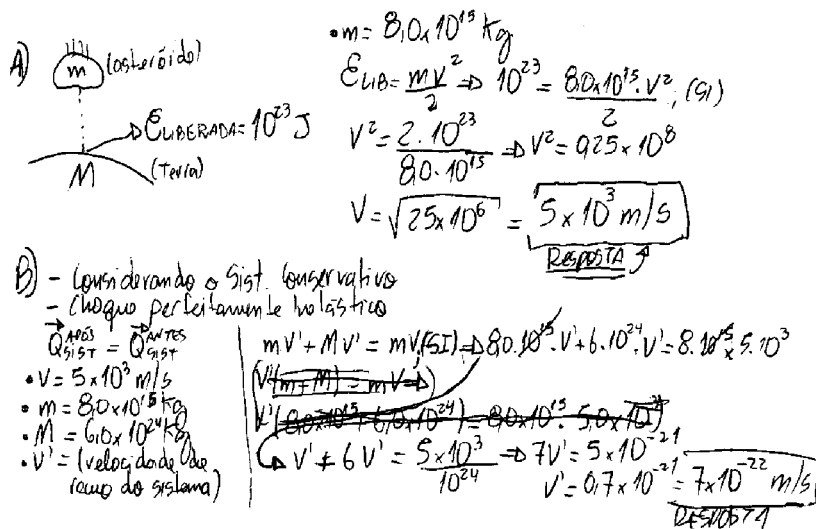 A) m (asteróide)
E LIBERADA = 10²³ J
M (Terra)
• m = 8,0 x 10¹⁵ Kg
E LIB = mv²/2 ⇒ 10²³ = 8,0 x 10¹⁵ . v²/2 , (SI)
V² = 2 . 10²³/8,0 . 10¹⁵ ⇒ V² = 0,25 x 10⁸
V = √25 x 10⁶ = 5 x 10³ m/s
RESPOSTA
B) - Considerando o Sist. Conservativo
- Choque perfeitamente inelástico
Q SIST APÓS = Q SIST ANTES
• V = 5 x 10³ m/s
• m = 8,0 x 10¹⁵ Kg
• M = 6,0 x 10²⁴ Kg
• V' = (velocidade de recuo do sistema)
mV' + MV' = mV, (SI) ⇒ 8,0 . 10¹⁵ . V' + 6 . 10²⁴ . V' = 8 . 10¹⁵ x 5 . 10³
V'(m + M) = mV ⇒
V'(8,0 x 10¹⁵ + 6,0 x 10²⁴) = 8,0 x 10¹⁵ . 5,0 x
V' + 6 V' = 5 x 10³/10²⁴ ⇒ 7V' = 5 x 10⁻²¹
V' = 0,7 x 10⁻²¹ = 7 x 10⁻²² m/s
RESPOSTA